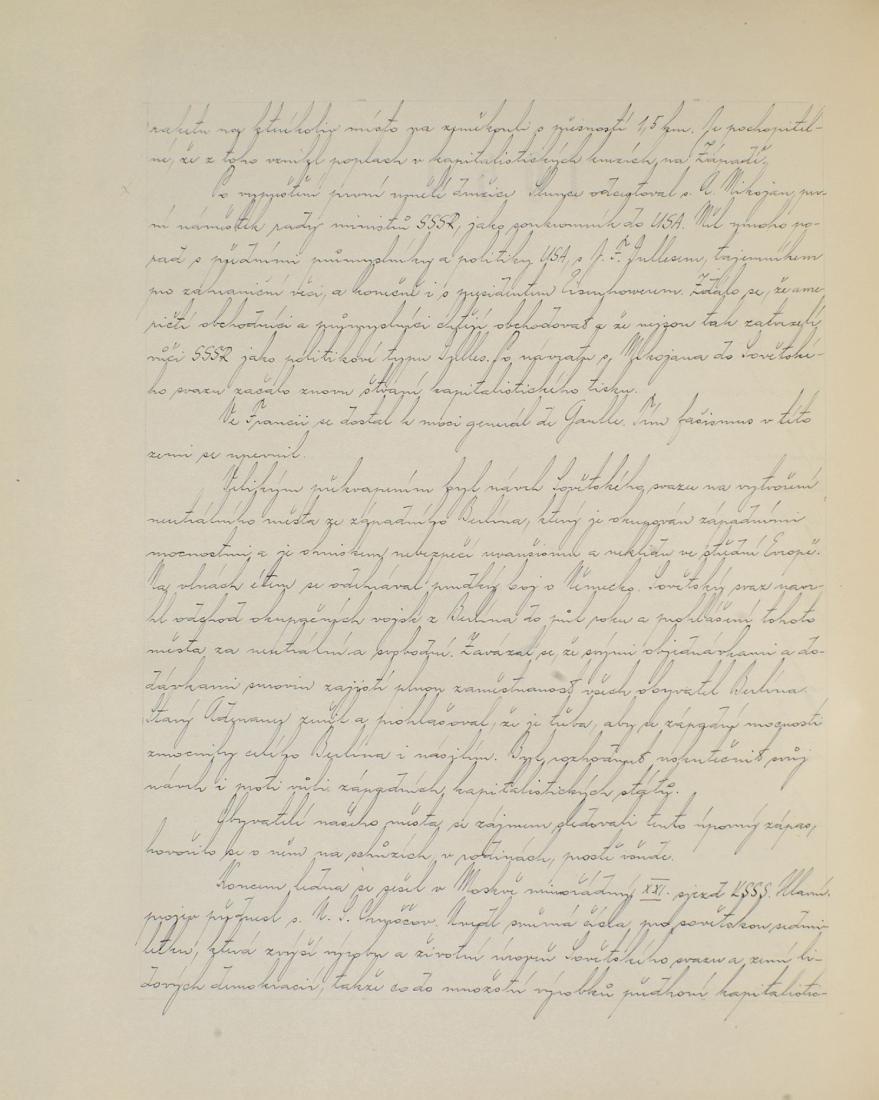 raketu na kterékoliv místo na zeměkouli s přesností 1,5 km. Je pochopitel-
né, že z toho vznikl poplach v kapitalistických kruzích na Západě.
Po vypuštění první umělé družice Slunce odcestoval s. A. Mikojan, prv-
ní náměstek rady ministrů SSSR, jako soukromník do USA. Měl mnoho po-
rad s předními průmyslníky a politiky USA, s J. F. Dullesem, tajemníkem
pro zahraniční věci, a konečně i s presidentem Eisenhowerem. Zdálo se, že ame-
ričtí obchodníci a průmyslníci chtějí obchodovat a že nejsou tak zatvrzelí
vůči SSSR jako politikové typu Dulles. Po návratu s. Mikojana do Sovětské-
ho svazu začalo znovu štvaní kapitalistického tisku.
Ve Francii se dostal k moci generál de Gaulle. Tím fašismus v této
zemi se upevnil.
Velikým překvapením byl návrh Sovětského svazu na vytvoření
neutrálního města ze západního Berlína, který je okupován západními
mocnostmi a je ohniskem nebezpečí a neklidu ve střední Evropě.
Na vlnách éteru se odehrával prudký boj o Německo. Sovětský svaz navr-
hl odchod okupačních vojsk z Berlína do půl roku a prohlášení tohoto
města za neutrální a svobodné. Zavázal se, že svými objednávkami a do-
dávkami surovin zajistí plnou zaměstnanost všech obyvatel Berlína.
Starý Adenauer zuřil a prohlašoval, že je třeba, aby se západní mocnosti
zmocnily celého Berlína i násilím. Byl rozhodnut uskutečnit svůj
návrh i proti vůli západních kapitalistických států.
Obyvatelé našeho města se zájmem sledovali tento úporný zápas,
hovořilo se o něm na schůzích, v rodinách, prostě všude.
Koncem ledna se sešel v Moskvě mimořádný XXI. sjezd KSSS. Hlavní
projev přednesl s. N. S. Chruščov. Uvedl směrná čísla pro sovětskou sedmi-
letku, která zvýší výrobu a životní úroveň Sovětského svazu a zemí li-
dových demokracií, takže co do množství výrobků předhoní kapitalistic-